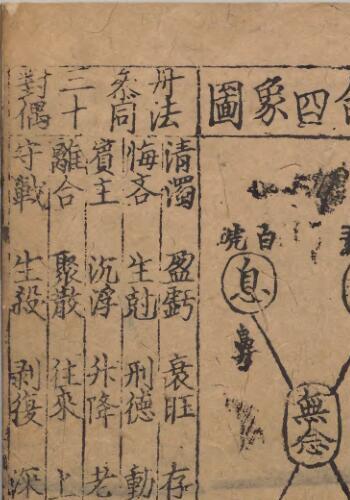 合四象圖
息
鼻
無念
丹法
叅同
三十
對偶
清濁 盈虧 衰旺 存
悔吝 生尅 刑德 動
賓主 沉浮 升降 老
離合 聚散 往來 上
守戰 生殺 剥復 深